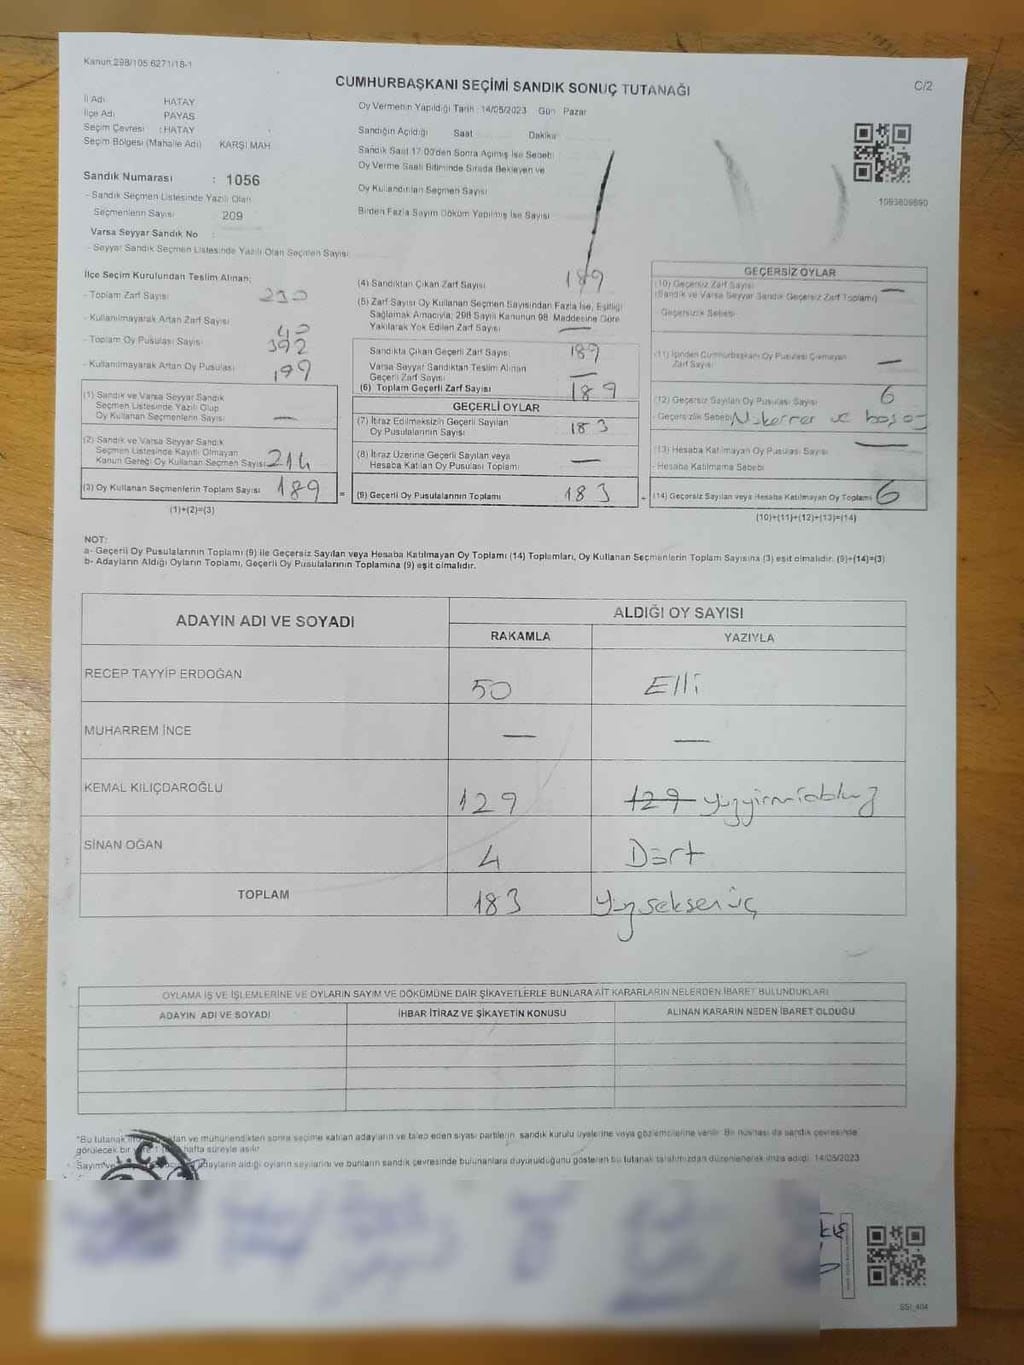 Kanun:298/105 6271/18-1
CUMHURBAŞKANI SEÇİMİ SANDIK SONUÇ TUTANAĞI
C/2
İl Adı HATAY
İlçe Adı PAYAS
Seçim Çevresi : HATAY
Seçim Bölgesi (Mahalle Adı) KARŞI MAH.
Sandık Numarası : 1056
- Sandık Seçmen Listesinde Yazılı Olan
Seçmenlerin Sayısı 209
Varsa Seyyar Sandık No :
- Seyyar Sandık Seçmen Listesinde Yazılı Olan Seçmen Sayısı
Oy Vermenin Yapıldığı Tarih : 14/05/2023 Gün Pazar
Sandığın Açıldığı Saat Dakika
Sandık Saat 17:00'den Sonra Açılmış İse Sebebi
Oy Verme Saati Bitiminde Sırada Bekleyen ve
Oy Kullandırılan Seçmen Sayısı
Birden Fazla Sayım Döküm Yapılmış İse Sayısı
1093809890
İlçe Seçim Kurulundan Teslim Alınan;
- Toplam Zarf Sayısı 230
- Kullanılmayarak Artan Zarf Sayısı
- Toplam Oy Pusulası Sayısı 392
- Kullanılmayarak Artan Oy Pusulası 199
(1) Sandık ve Varsa Seyyar Sandık
Seçmen Listesinde Yazılı Olup
Oy Kullanan Seçmenlerin Sayısı —
(2) Sandık ve Varsa Seyyar Sandık
Seçmen Listesinde Kayıtlı Olmayan
Kanun Gereği Oy Kullanan Seçmen Sayısı 214
(3) Oy Kullanan Seçmenlerin Toplam Sayısı 189 =
(1)+(2)=(3)
(4) Sandıktan Çıkan Zarf Sayısı 189
(5) Zarf Sayısı Oy Kullanan Seçmen Sayısından Fazla İse, Eşitliği
Sağlamak Amacıyla, 298 Sayılı Kanunun 98. Maddesine Göre
Yakılarak Yok Edilen Zarf Sayısı —
Sandıkta Çıkan Geçerli Zarf Sayısı 189
Varsa Seyyar Sandıktan Teslim Alınan
Geçerli Zarf Sayısı —
(6) Toplam Geçerli Zarf Sayısı 189
GEÇERLİ OYLAR
(7) İtiraz Edilmeksizin Geçerli Sayılan
Oy Pusulalarının Sayısı 183
(8) İtiraz Üzerine Geçerli Sayılan veya
Hesaba Katılan Oy Pusulası Toplamı —
(9) Geçerli Oy Pusulalarının Toplamı 183 +
GEÇERSİZ OYLAR
(10) Geçersiz Zarf Sayısı —
(Sandık ve Varsa Seyyar Sandık Geçersiz Zarf Toplamı)
- Geçersizlik Sebebi
(11) İçinden Cumhurbaşkanı Oy Pusulası Çıkmayan
Zarf Sayısı —
(12) Geçersiz Sayılan Oy Pusulası Sayısı 6
Geçersizlik Sebebi ve boş oy
(13) Hesaba Katılmayan Oy Pusulası Sayısı —
- Hesaba Katılmama Sebebi
(14) Geçersiz Sayılan veya Hesaba Katılmayan Oy Toplamı 6
(10)+(11)+(12)+(13)=(14)
NOT:
a- Geçerli Oy Pusulalarının Toplamı (9) ile Geçersiz Sayılan veya Hesaba Katılmayan Oy Toplamı (14) Toplamları, Oy Kullanan Seçmenlerin Toplam Sayısına (3) eşit olmalıdır. (9)+(14)=(3)
b- Adayların Aldığı Oyların Toplamı, Geçerli Oy Pusulalarının Toplamına (9) eşit olmalıdır.
ADAYIN ADI VE SOYADI ALDIĞI OY SAYISI
RAKAMLA YAZIYLA
RECEP TAYYİP ERDOĞAN 50 Elli
MUHARREM İNCE — —
KEMAL KILIÇDAROĞLU 129 129 yüzyirmidokuz
SİNAN OĞAN 4 Dört
TOPLAM 183 Yüzseksenüç
OYLAMA İŞ VE İŞLEMLERİNE VE OYLARIN SAYIM VE DÖKÜMÜNE DAİR ŞİKAYETLERLE BUNLARA AİT KARARLARIN NELERDEN İBARET BULUNDUKLARI
ADAYIN ADI VE SOYADI İHBAR İTİRAZ VE ŞİKAYETİN KONUSU ALINAN KARARIN NEDEN İBARET OLDUĞU
*Bu tutanak ve mühürlendikten sonra seçime katılan adayların ve talep eden siyasi partilerin, sandık kurulu üyelerine veya gözlemcilerine verilir. Bir nüshası da sandık çevresinde
görülecek bir yere hafta süreyle asılır.
adayların aldığı oyların sayılarını ve bunların sandık çevresinde bulunanlara duyurulduğunu gösteren bu tutanak tarafımızdan düzenlenerek imza edildi. 14/05/2023
T.C.
SSİ_404